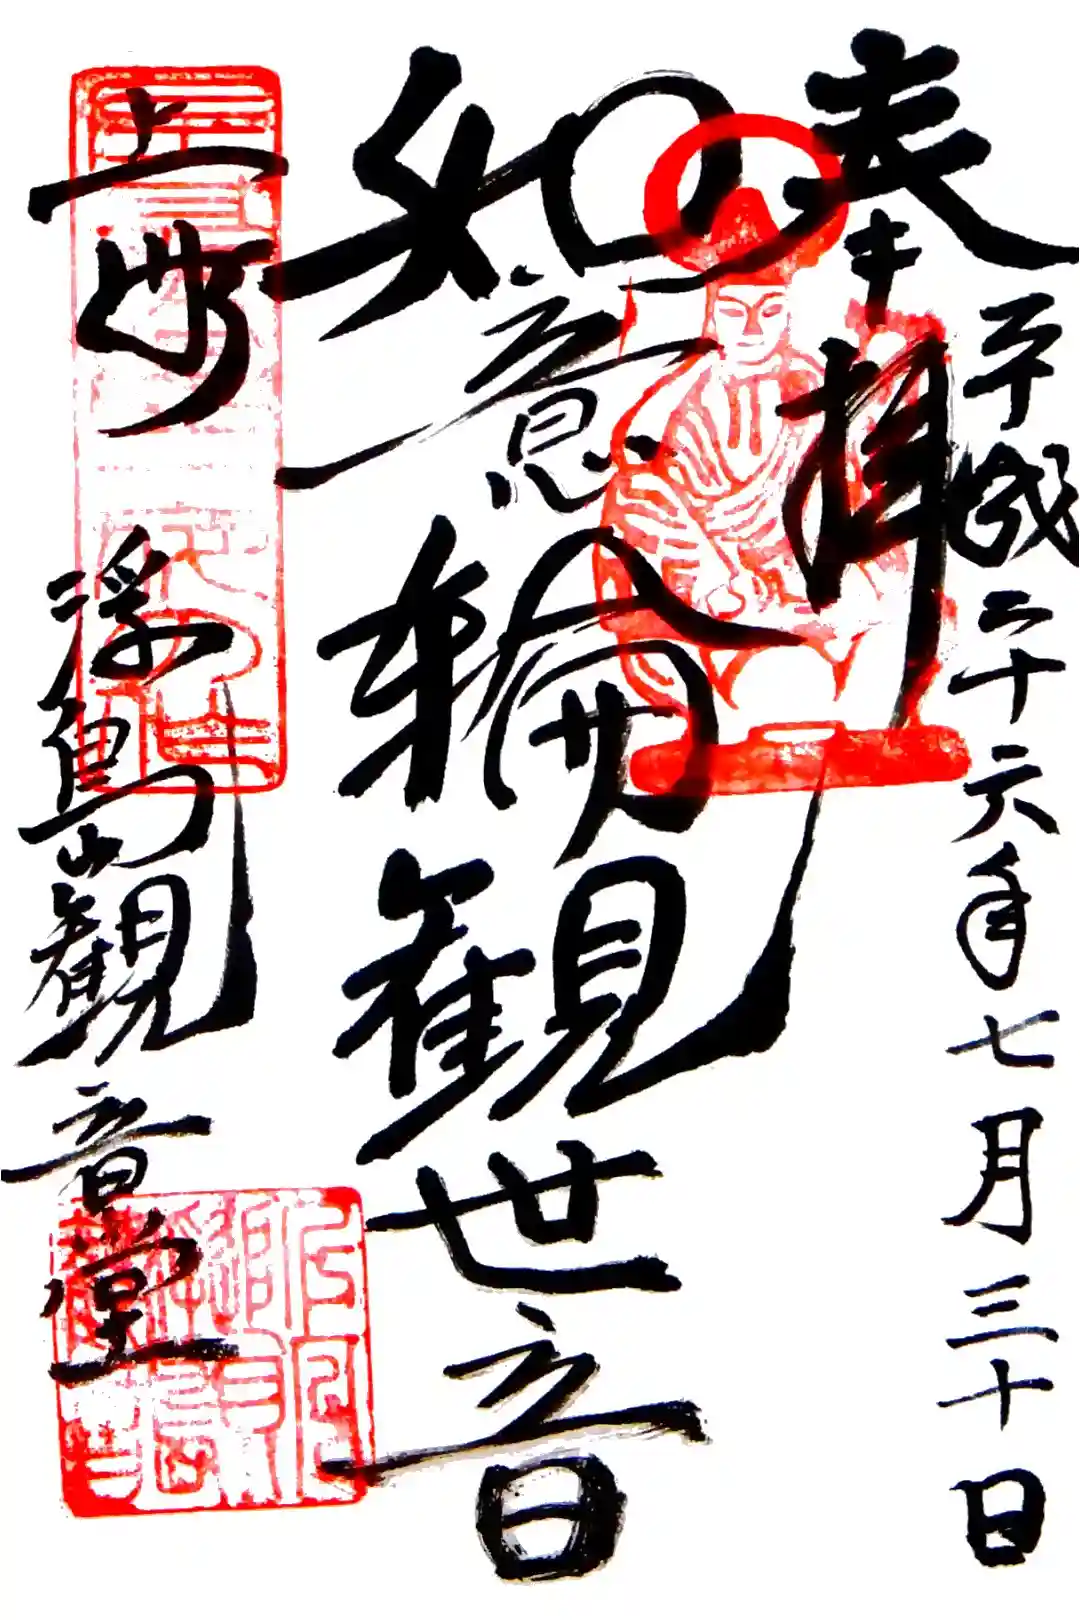 奉拝
平成二十六年七月三十日
如意輪観世音
上州
浮島観音堂